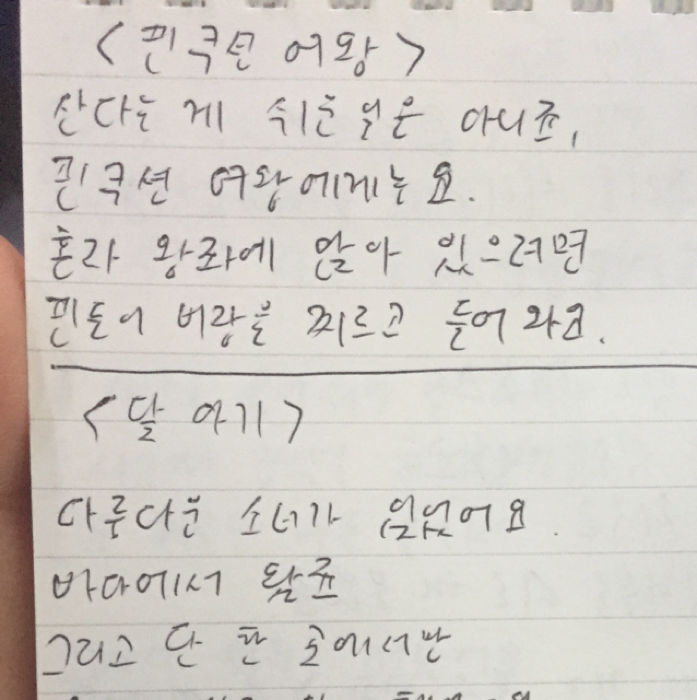 <핀쿠션 여왕>
산다는 게 쉬운 일은 아니죠,
핀쿠션 여왕에게는요.
혼자 왕좌에 앉아 있으려면
핀들이 머랑을 찌르고 들어와요.
<달 아기>
다루다운 소녀가 있었어요.
바다에서
그리고 단 한 곳에서만